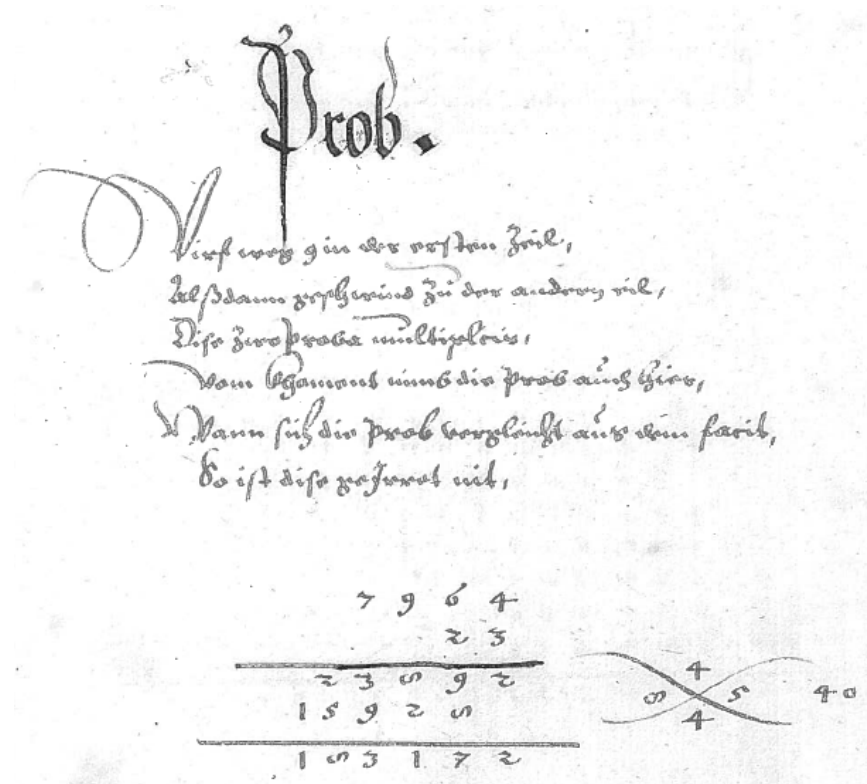 Prob.
Wirf weg 9 in der ersten Zeil,
Alßdann geschwind zu der andern eil,
Dise zwo Proba multiplicir,
Vom khoment nimb die Prob auch hier,
Wann sich die Prob vergleicht aus dem facit,
So ist dise geJrret nit,
7 9 6 4
2 3
2 3 8 9 2
1 5 9 2 8
1 8 3 1 7 2
4
8 5 40
4